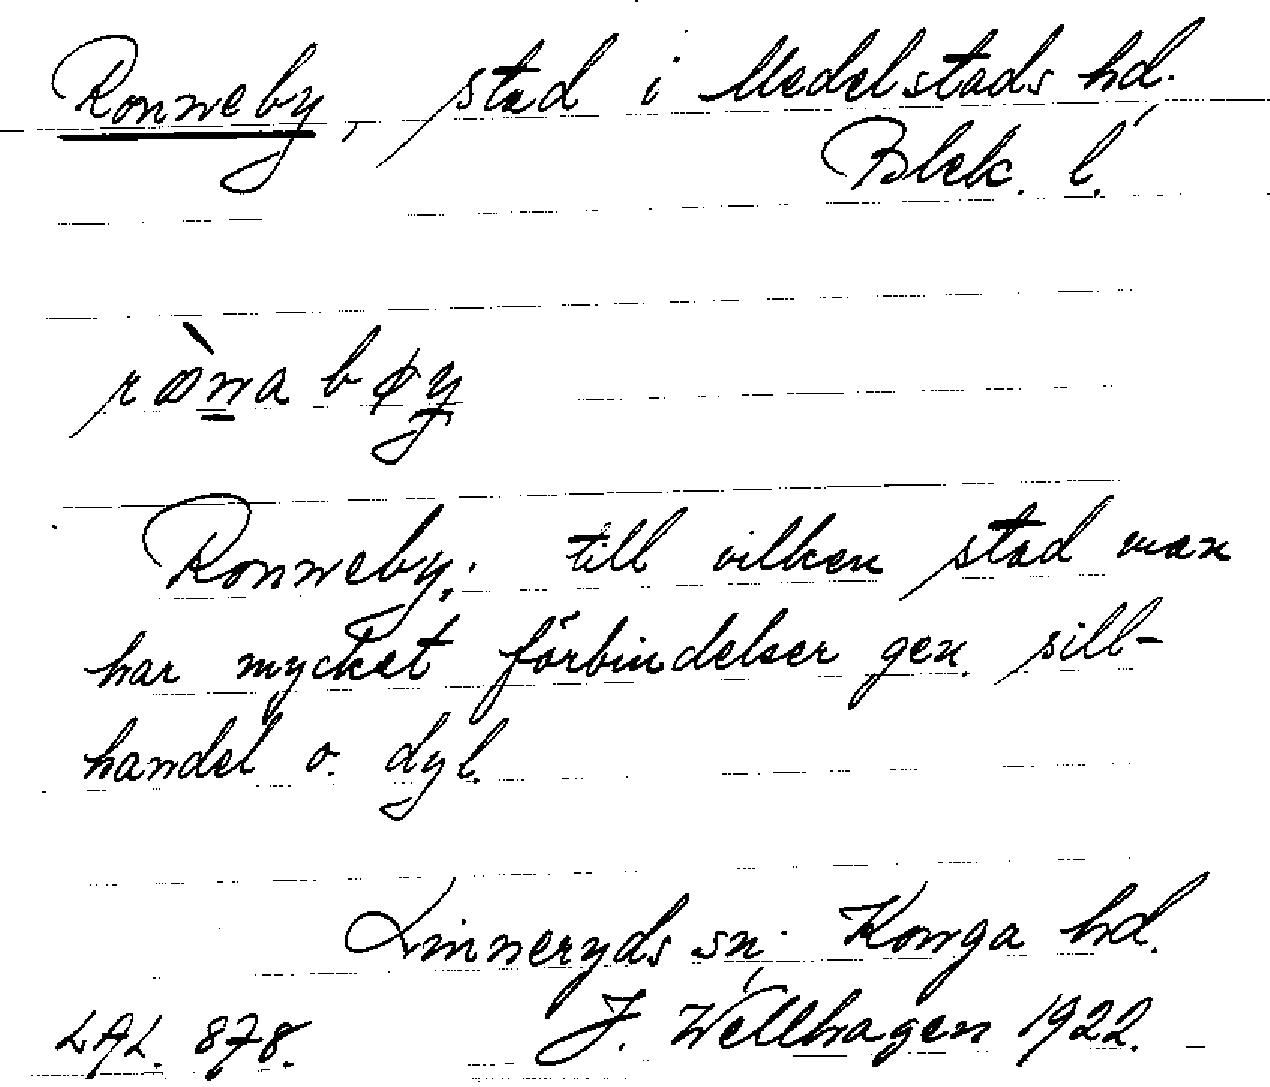 Ronneby, stad i Medelstads hd.
Blek. l.
Ronneby; till vilken stad man
har mycket förbindelser gen. sill-
handel o. dyl.
Linneryds sn; Konga hd.
LAL. 878. J. Wellhagen 1922.